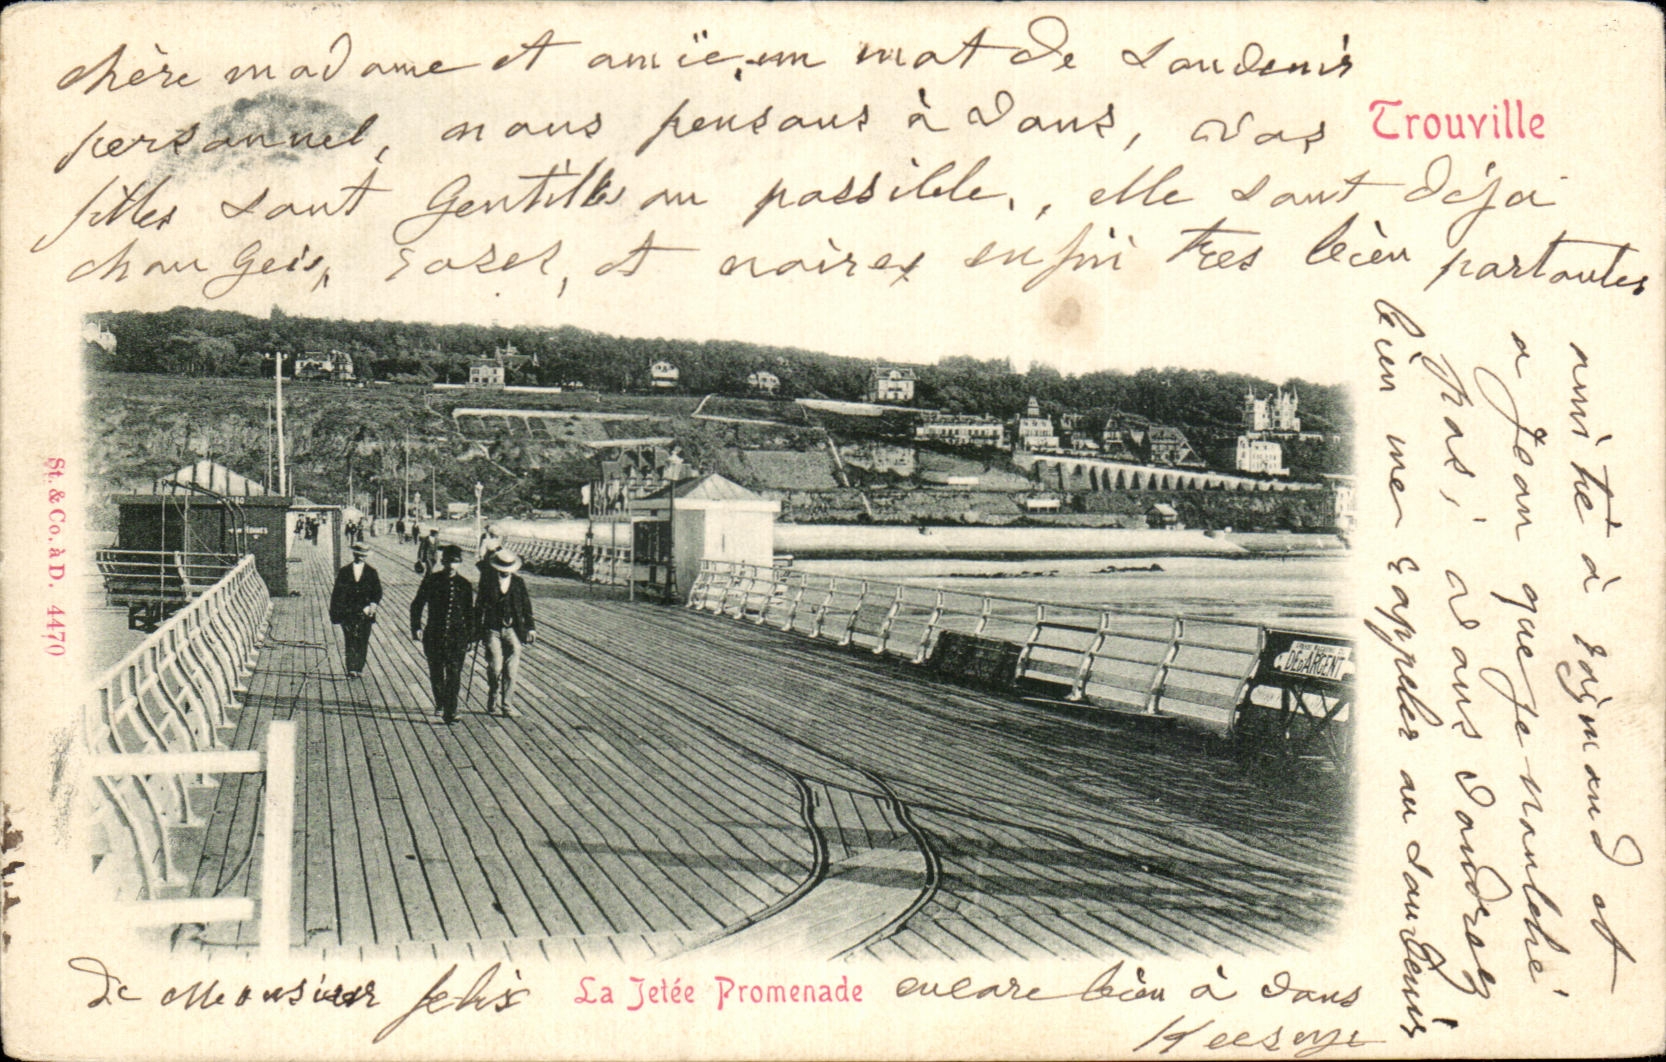 chère madame et amïe, un mot de Soudenir
personnel, nous pensons à Vous, Vos
Trouville
filles sont Gentilles au possible, elle sont déja
changeis, roses, et noires enfin tres bien portantes
amitié à et
a Jean que je noublié
pas, Vous Voudrez
bien me rappeler au souvenir
St. & Co. à D. 4470
DÉD'ARGENT
de Monsieur felix
La Jetée Promenade
encore bien à Vous